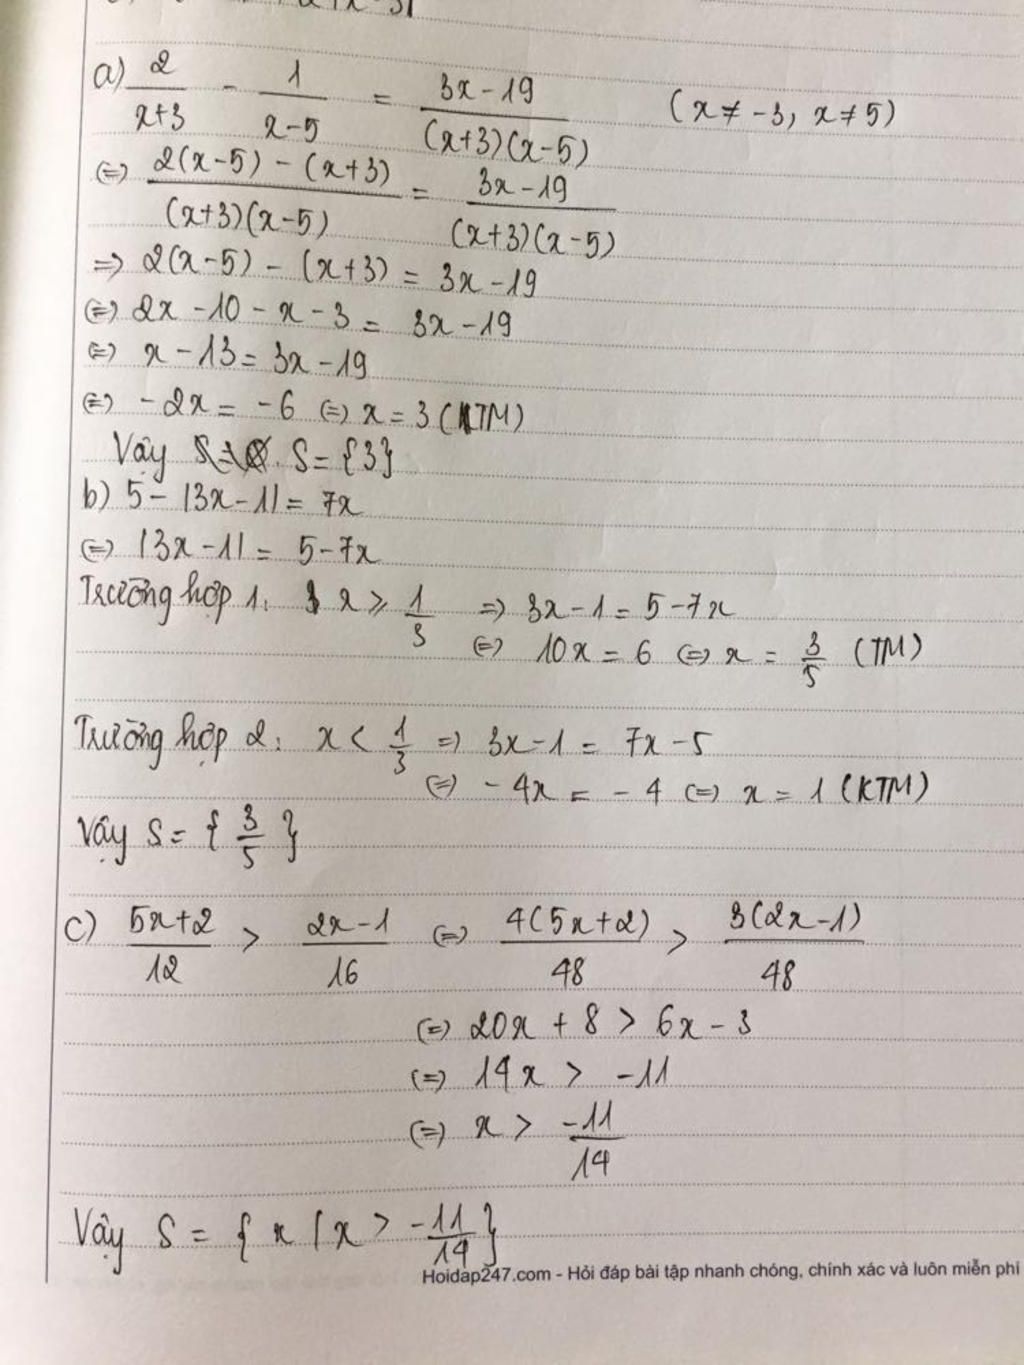 a) 2/(x+3) - 1/(x-5) = (3x-19)/((x+3)(x-5)) (x ≠ -3, x ≠ 5)
(=) (2(x-5) - (x+3))/((x+3)(x-5)) = (3x-19)/((x+3)(x-5))
=> 2(x-5) - (x+3) = 3x-19
(=) 2x - 10 - x - 3 = 3x - 19
(=) x - 13 = 3x - 19
(=) -2x = -6 (=) x = 3 (TM)
Vậy S = {3}
b) 5 - |3x - 1| = 7x
(=) |3x - 1| = 5 - 7x
Trường hợp 1: x ≥ 1/3 => 3x - 1 = 5 - 7x
(=) 10x = 6 (=) x = 3/5 (TM)
Trường hợp 2: x < 1/3 => 3x - 1 = 7x - 5
(=) -4x = -4 (=) x = 1 (KTM)
Vậy S = { 3/5 }
c) (5x+2)/12 > (2x-1)/16 (=) 4(5x+2)/48 > 3(2x-1)/48
(=) 20x + 8 > 6x - 3
(=) 14x > -11
(=) x > -11/14
Vậy S = { x | x > -11/14 }
Hoidap247.com - Hỏi đáp bài tập nhanh chóng, chính xác và luôn miễn phí